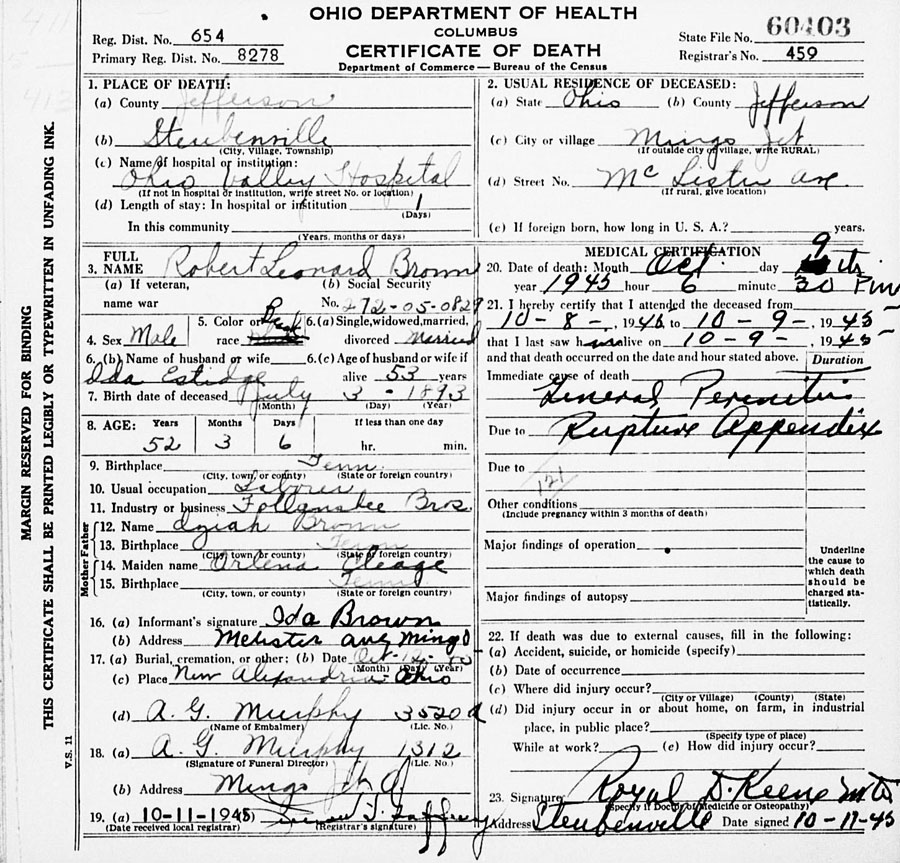 OHIO DEPARTMENT OF HEALTH
COLUMBUS
CERTIFICATE OF DEATH
Department of Commerce — Bureau of the Census
Reg. Dist. No. 654
Primary Reg. Dist. No. 8278
State File No. 60403
Registrar's No. 459
MARGIN RESERVED FOR BINDING
THIS CERTIFICATE SHALL BE PRINTED LEGIBLY OR TYPEWRITTEN IN UNFADING INK.
V.S. 11
1. PLACE OF DEATH:
(a) County Jefferson
(b) Steubenville
(City, Village, Township)
(c) Name of hospital or institution:
Ohio Valley Hospital
(If not in hospital or institution, write street No. or location)
(d) Length of stay: In hospital or institution 1
(Days)
In this community
(Years, months or days)
2. USUAL RESIDENCE OF DECEASED:
(a) State Ohio (b) County Jefferson
(c) City or village Mingo Jct
(If outside city or village, write RURAL)
(d) Street No. McLister Ave.
(If rural, give location)
(e) If foreign born, how long in U. S. A.? years.
3. FULL NAME Robert Leonard Brown
(a) If veteran, name war
(b) Social Security No. 272-05-0829
4. Sex Male
5. Color or race
6. (a) Single, widowed, married, divorced Married
6. (b) Name of husband or wife
Ida Estidge
6. (c) Age of husband or wife if alive 53 years
7. Birth date of deceased July 3 - 1893
(Month) (Day) (Year)
8. AGE: Years Months Days If less than one day
52 3 6 hr. min.
9. Birthplace Tenn.
(City, town, or county) (State or foreign country)
10. Usual occupation Laborer
11. Industry or business Follansbee Bros.
Father
12. Name Brown
13. Birthplace Tenn
(City, town, or county) (State or foreign country)
Mother
14. Maiden name Arlena Cleage
15. Birthplace Tenn.
(City, town, or county) (State or foreign country)
16. (a) Informant's signature Ida Brown
(b) Address Mclister ave Mingo
17. (a) Burial, cremation, or other: (b) Date Oct-12-45
(Month) (Day) (Year)
(c) Place New Alexandria Ohio
(d) A. G. Murphy 3520 a
(Name of Embalmer) (Lic. No.)
18. (a) A. G. Murphy 1312
(Signature of Funeral Director) (Lic. No.)
(b) Address Mingo Jct O.
19. (a) 10-11-1945 (b)
(Date received local registrar) (Registrar's signature)
MEDICAL CERTIFICATION
20. Date of death: Month Oct. day 9 th
year 1945 hour 6 minute 30 Pm
21. I hereby certify that I attended the deceased from
10-8-, 1945 to 10-9-, 1945
that I last saw him alive on 10-9-, 1945
and that death occurred on the date and hour stated above.
Duration
Immediate cause of death
General Peronitis
Due to Rupture Appendix
Due to
121
Other conditions
(Include pregnancy within 3 months of death)
Major findings of operation
Major findings of autopsy
Underline the cause to which death should be charged statistically.
22. If death was due to external causes, fill in the following:
(a) Accident, suicide, or homicide (specify)
(b) Date of occurrence
(c) Where did injury occur?
(City or Village) (County) (State)
(d) Did injury occur in or about home, on farm, in industrial
place, in public place?
(Specify type of place)
While at work? (e) How did injury occur?
23. Signature Royal D. Keene MD
(Specify if Doctor of Medicine or Osteopathy)
Address Steubenville Date signed 10-11-45